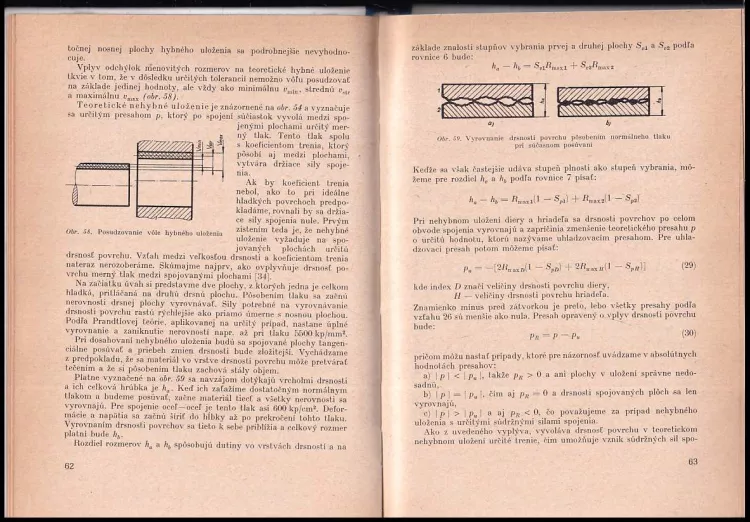 točnej nosnej plochy hybného uloženia sa podrobnejšie nevyhodno-
cuje.
Vplyv odchýlok menovitých rozmerov na teoretické hybné uloženie
tkvie v tom, že v dôsledku určitých tolerancií nemožno vôľu posudzovať
na základe jedinej hodnoty, ale vždy ako minimálnu vmin, strednú vstr
a maximálnu vmax (obr. 58).
Teoretické nehybné uloženie je znázornené na obr. 54 a vyznačuje
sa určitým presahom p, ktorý po spojení súčiastok vyvolá medzi spo-
jenými plochami určitý mer-
ný tlak. Tento tlak spolu
s koeficientom trenia, ktorý
pôsobí aj medzi plochami,
vytvára držiace sily spoje-
nia.
Ak by koeficient trenia
nebol, ako to pri ideálne
hladkých povrchoch predpo-
kladáme, rovnali by sa držia-
ce sily spojenia nule. Prvým
zistením teda je, že nehybné
uloženie vyžaduje na spo-
jovaných plochách určitú
Obr. 58. Posudzovanie vôle hybného uloženia
drsnosť povrchu. Vzťah medzi veľkosťou drsnosti a koeficientom trenia
nateraz nerozoberáme. Skúmajme najprv, ako ovplyvňuje drsnosť po-
vrchu merný tlak medzi spojovanými plochami [34].
Na začiatku úvah si predstavme dve plochy, z ktorých jedna je celkom
hladká, pritláčaná na druhú drsnú plochu. Pôsobením tlaku sa začnú
nerovnosti drsnej plochy vyrovnávať. Sily potrebné na vyrovnávanie
drsnosti povrchu rastú rýchlejšie ako priamo úmerne s nosnou plochou.
Podľa Prandtlovej teórie, aplikovanej na určitý prípad, nastane úplné
vyrovnanie a zaniknutie nerovností napr. až pri tlaku 5500 kp/mm².
Pri dosahovaní nehybného uloženia budú sa spojované plochy tangen-
ciálne posúvať a priebeh zmien drsnosti bude zložitejší. Vychádzame
z predpokladu, že sa materiál vo vrstve drsnosti povrchu môže pretvárať
tečením a že si pôsobením tlaku zachová stály objem.
Platne vyznačené na obr. 59 sa navzájom dotýkajú vrcholmi drsnosti
a ich celková hrúbka je ha. Keď ich zaťažíme dostatočným normálnym
tlakom a budeme posúvať, začne materiál tiecť a všetky nerovnosti sa
vyrovnajú. Pre spojenie oceľ—oceľ je tento tlak asi 600 kp/cm². Defor-
mácie a napätia sa začnú šíriť do hĺbky až po prekročení tohto tlaku.
Vyrovnaním drsnosti povrchov sa tieto k sebe priblížia a celkový rozmer
platní bude hb.
Rozdiel rozmerov ha a hb spôsobujú dutiny vo vrstvách drsnosti a na
62
základe znalosti stupňov vybrania prvej a druhej plochy Sv1 a Sv2 podľa
rovnice 6 bude:
ha — hb = Sv1Rmax1 + Sv2Rmax2
1
2
a)
b)
Obr. 59. Vyrovnanie drsnosti povrchu pôsobením normálneho tlaku
pri súčasnom posúvaní
Keďže sa však častejšie udáva stupeň plnosti ako stupeň vybrania, mô-
žeme pre rozdiel ha a hb podľa rovnice 7 písať:
ha — hb = Rmax1[1 — Sp1] + Rmax2[1 — Sp2]
Pri nehybnom uložení diery a hriadeľa sa drsnosti povrchov po celom
obvode spojenia vyrovnajú a zapríčinia zmenšenie teoretického presahu p
o určitú hodnotu, ktorú nazývame uhladzovacím presahom. Pre uhla-
dzovací presah potom môžeme písať:
pu = —[2RmaxD(1 — SpD) + 2RmaxH(1 — SpH)] (29)
kde index D značí veličiny drsnosti povrchu diery,
H — veličiny drsnosti povrchu hriadeľa.
Znamienko mínus pred zátvorkou je preto, lebo všetky presahy podľa
vzťahu 26 sú menšie ako nula. Presah opravený o vplyv drsnosti povrchu
bude:
pR = p — pu (30)
pričom môžu nastať prípady, ktoré pre názornosť uvádzame v absolútnych
hodnotách presahov:
a) | p | < | pu |, takže pR > 0 a ani plochy v uložení správne nedo-
sadnú,
b) | p | = | pu |, čím aj pR = 0 a drsnosti spojovaných plôch sa len
vyrovnajú,
c) | p | > | pu | a aj pR < 0, čo považujeme za prípad nehybného
uloženia s určitými súdržnými silami spojenia.
Ako z uvedeného vyplýva, vyvoláva drsnosť povrchu v teoretickom
nehybnom uložení určité trenie, čím umožňuje vznik súdržných síl spo-
63